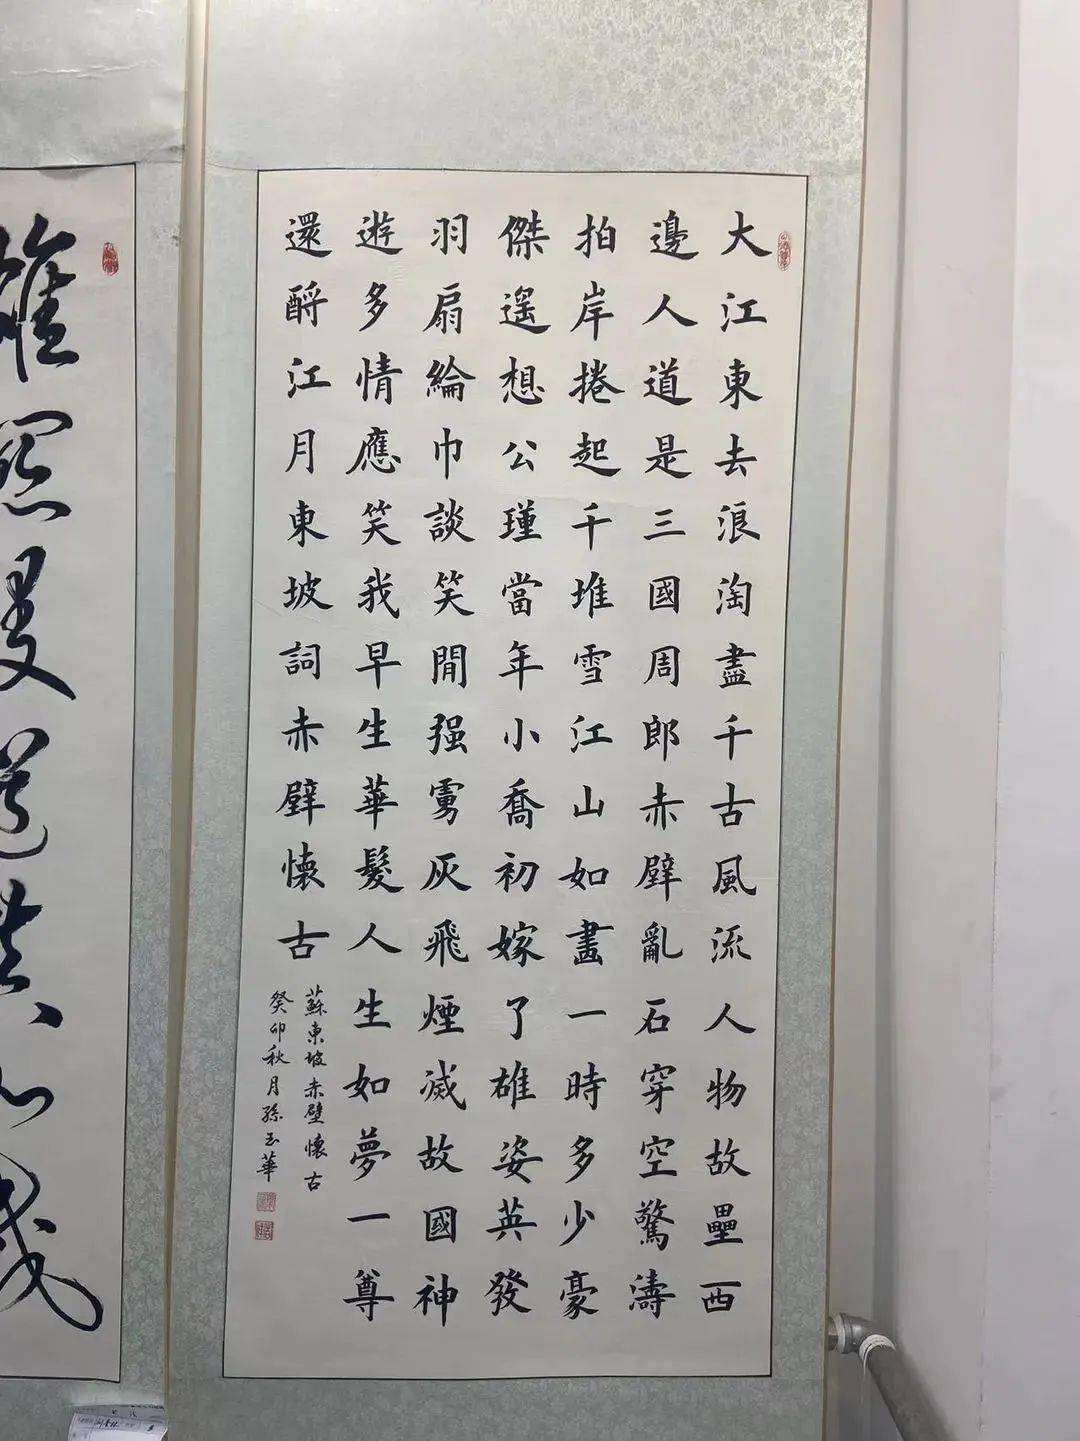 大江東去浪淘盡千古風流人物故壘西
邊人道是三國周郎赤壁亂石穿空驚濤
拍岸捲起千堆雪江山如畫一時多少豪
傑遙想公瑾當年小喬初嫁了雄姿英發
羽扇綸巾談笑間強虜灰飛煙滅故國神
遊多情應笑我早生華髮人生如夢一尊
還酹江月東坡詞赤壁懷古
蘇東坡赤壁懷古
癸卯秋月孫玉華